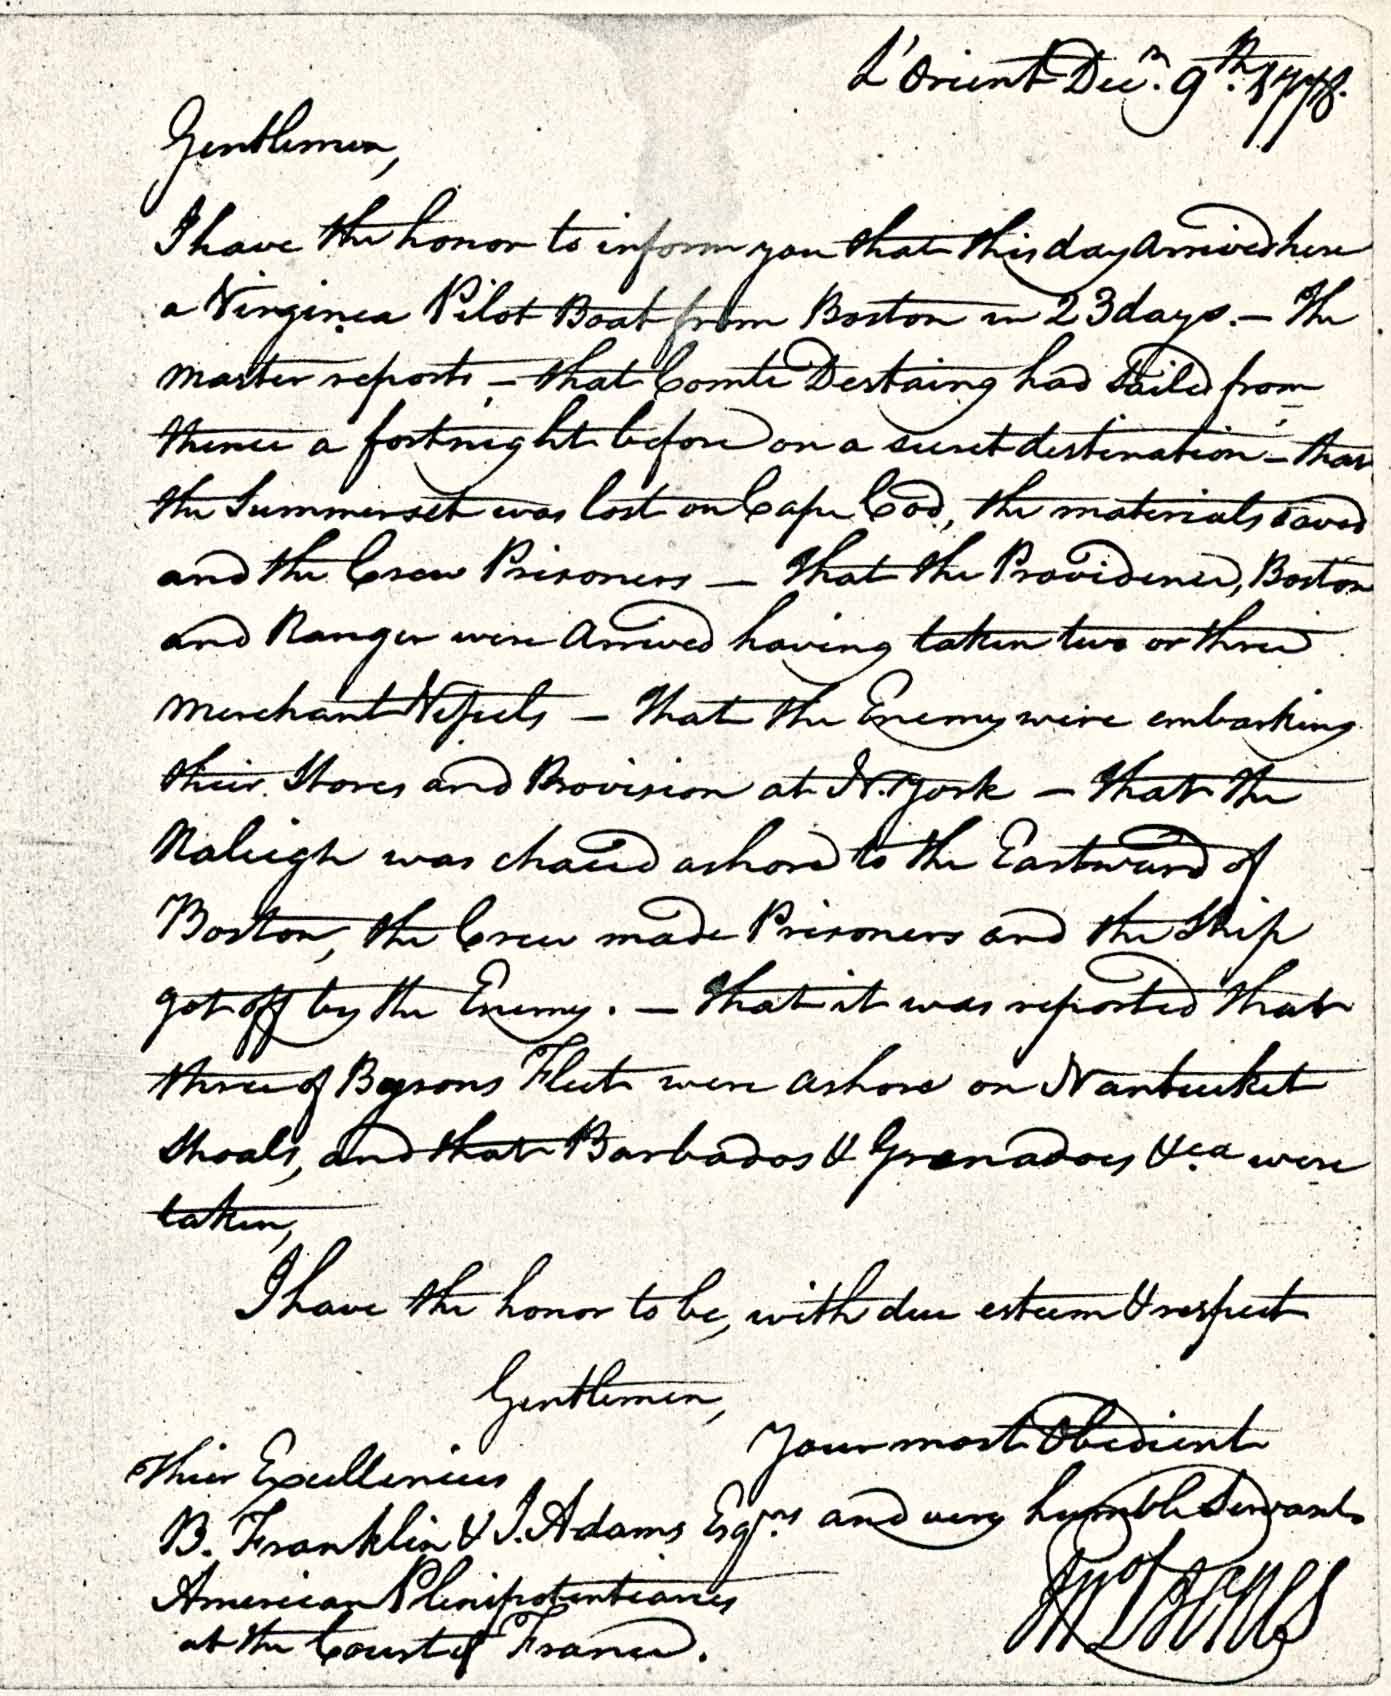 L'Orient Decr. 9th. 1778.
Gentlemen,
I have the honor to inform you that this day Arrived here
a Virginea Pilot Boat from Boston in 23 days. — The
Master reports, — that Comte Destaing had Sailed from
thence a fortnight before on a secret destination — that
the Summerset was lost on Cape Cod, the materials saved
and the Crew Prisoners — that the Providence, Boston
and Ranger were Arrived having taken two or three
Merchant Vessels — that the Enemy were embarking
their Stores and Provision at N. York — that the
Raleigh was chaced ashore to the Eastward of
Boston, the Crew made Prisoners and the Ship
got off by the Enemy. — that it was reported that
three of Byrons Fleet were ashore on Nantucket
Shoals, and that Barbados & Granadoes &ca were
taken,
I have the honor to be, with due esteem & respect
Gentlemen,
Your most Obedient
and very humble Servant
Jno P Jones
Thier Excellencies
B. Franklin & J. Adams Esqrs
American Plenipotentiaries
at the Court of France.